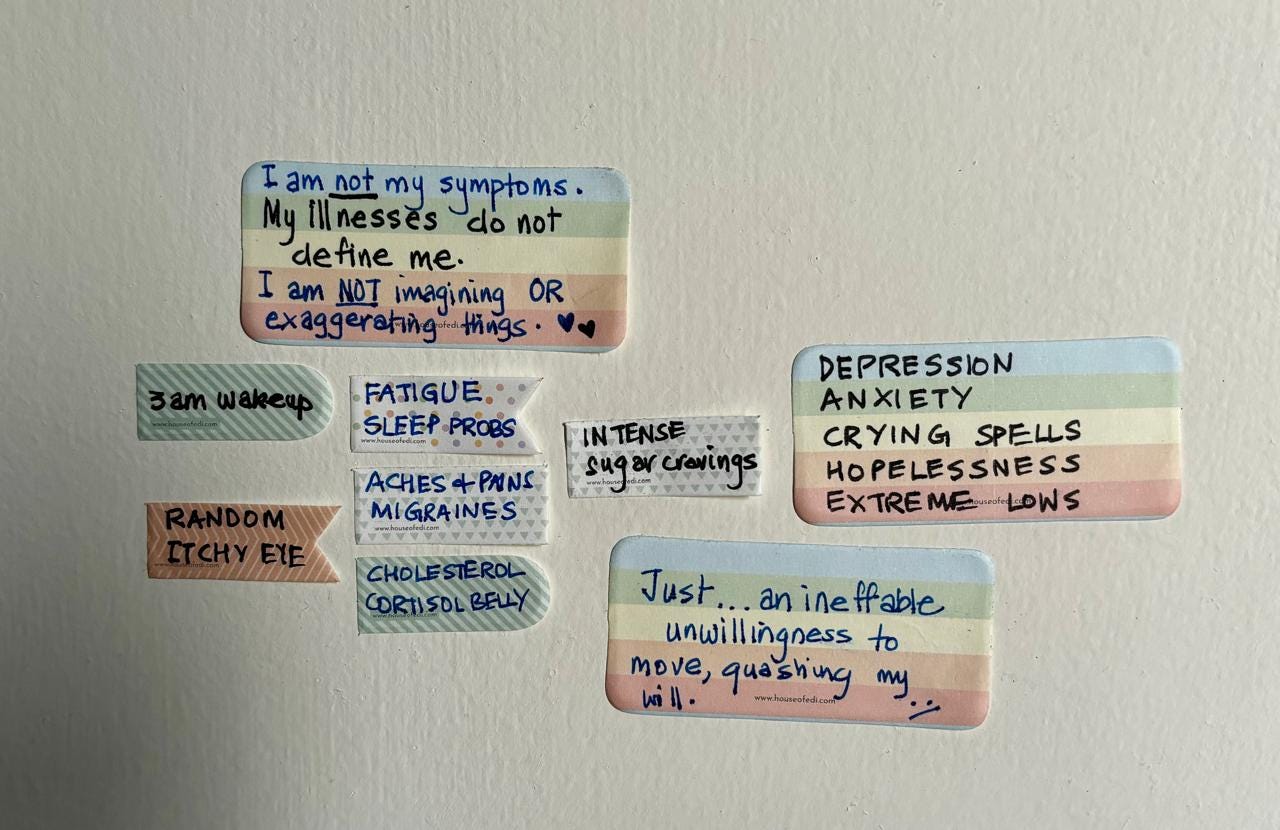 I am not my symptoms.
My illnesses do not
define me.
I am NOT imagining OR
exaggerating things.
3am wakeup
www.houseofedi.com
FATIGUE
SLEEP PROBS
www.houseofedi.com
INTENSE
sugar cravings
www.houseofedi.com
ACHES & PAINS
MIGRAINES
www.houseofedi.com
RANDOM
ITCHY EYE
CHOLESTEROL
CORTISOL BELLY
DEPRESSION
ANXIETY
CRYING SPELLS
HOPELESSNESS
EXTREME LOWS
Just... an ineffable
unwillingness to
move, quashing my
will.
www.houseofedi.com